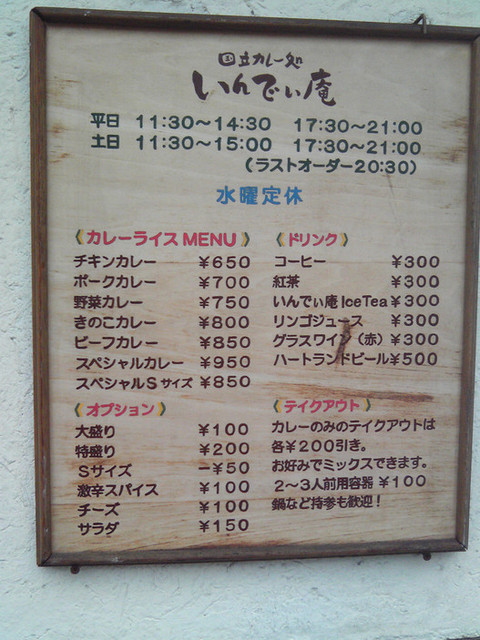 国立カレー処
いんでぃ庵
平日 11:30～14:30 17:30～21:00
土日 11:30～15:00 17:30～21:00
(ラストオーダー20:30)
水曜定休
《カレーライス MENU》
チキンカレー ￥650
ポークカレー ￥700
野菜カレー ￥750
きのこカレー ￥800
ビーフカレー ￥850
スペシャルカレー ￥950
スペシャルSサイズ ￥850
《オプション》
大盛り ￥100
特盛り ￥200
Sサイズ －￥50
激辛スパイス ￥100
チーズ ￥100
サラダ ￥150
《ドリンク》
コーヒー ￥300
紅茶 ￥300
いんでぃ庵 IceTea ￥300
リンゴジュース ￥300
グラスワイン(赤) ￥300
ハートランドビール ￥500
《テイクアウト》
カレーのみのテイクアウトは
各￥200引き。
お好みでミックスできます。
2～3人前用容器 ￥100
鍋など持参も歓迎！